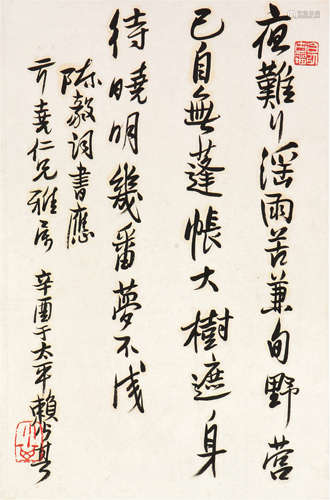 夜難行淫雨苦兼旬野營
已自無蓬帳大樹遮身
待曉明幾番夢不成
陳毅詞書應
可堯仁兄雅屬
辛酉于太平賴少其